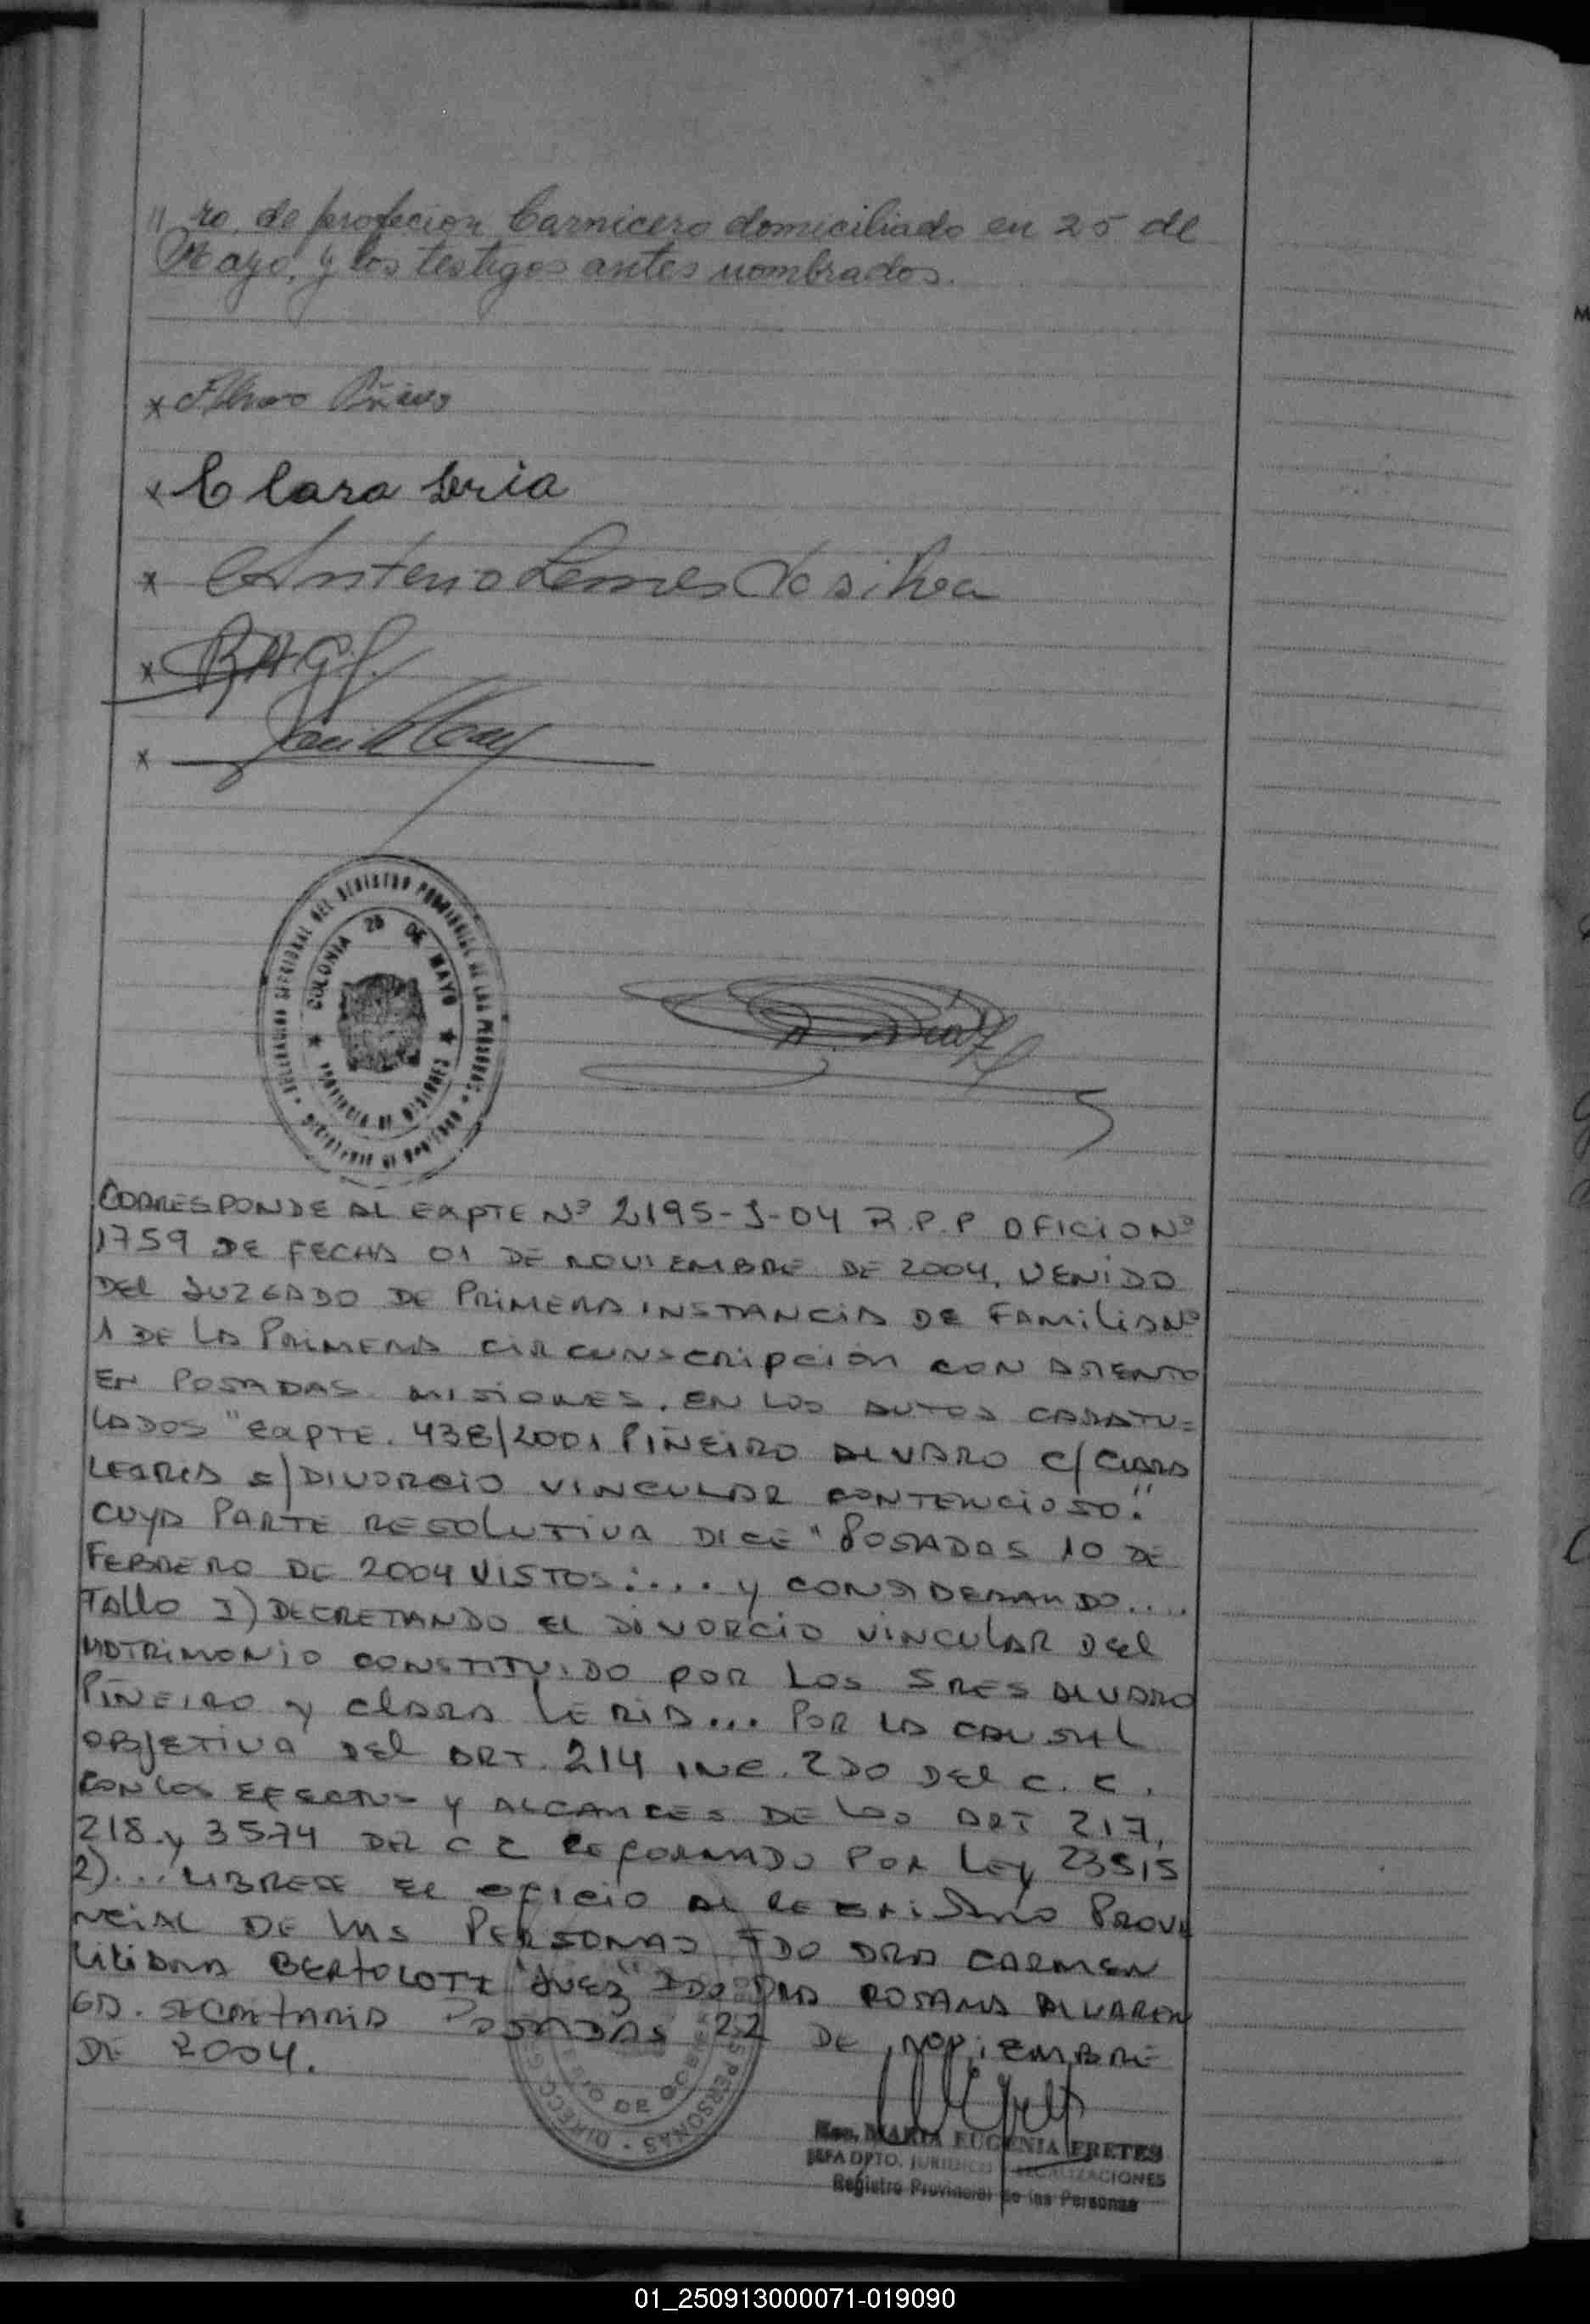 11 ro. de profecion Carnicero domiciliado en 25 de
Mayo, y los testigos antes nombrados.
x
x Clara Leria
x Antenio Lemes Da silva
x
x
DELEGACION SECCIONAL DEL REGISTRO PROVINCIAL DE LAS PERSONAS
COLONIA 25 DE MAYO
PROVINCIA DE MISIONES
CORRESPONDE AL EXPTE Nº 2195-J-04 R.P.P OFICIO Nº
1759 DE FECHA 01 DE NOVIEMBRE DE 2004, VENIDO
DEL JUZGADO DE PRIMERA INSTANCIA DE FAMILIA Nº
1 DE LA PRIMERA CIRCUNSCRIPCION CON ASIENTO
EN POSADAS. MISIONES. EN LOS AUTOS CARATU=
LADOS "EXPTE. 438/2001 PIÑEIRO ALVARO C/ CLARA
LERIA S/ DIVORCIO VINCULAR CONTENCIOSO."
CUYA PARTE RESOLUTIVA DICE "POSADAS 10 DE
FEBRERO DE 2004 VISTOS:.... Y CONSIDERANDO....
FALLO 1) DECRETANDO EL DIVORCIO VINCULAR DEL
MATRIMONIO CONSTITUIDO POR LOS SRES ALVARO
PIÑEIRO Y CLARA LERIA... POR LA CAUSAL
OBJETIVA DEL ART. 214 INC. 2DO DEL C.C.
CON LOS EFECTOS Y ALCANCES DE LOS ART 217,
218 y 3574 DEL C C REFORMADO POR LEY 23515
2)... LIBRESE EL OFICIO AL REGISTRO PROVI
NCIAL DE LAS PERSONAS FDO DRA CARMEN
LILIANA BERTOLOTI "JUEZ" FDO DRA ROSANA ALVAREN
GA. SECRETARIA POSADAS 22 DE NOVIEMBRE
DE 2004.
MARIA EUGENIA FRETES
JEFA DPTO. JURIDICO Y LEGALIZACIONES
Registro Provincial de las Personas
01_250913000071-019090